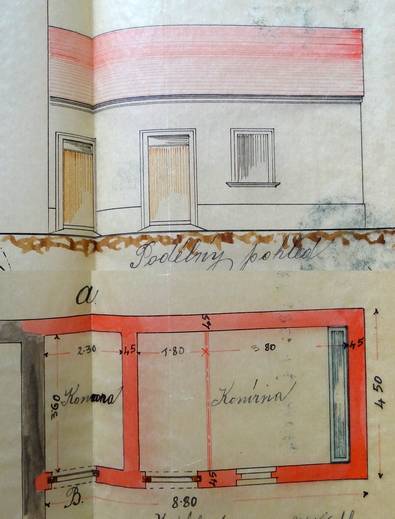 Podélny pohled
a
45
2·30
45
1·80
3 80
45
3·60
Komora
Konírna
4 50
45
B.
8·80